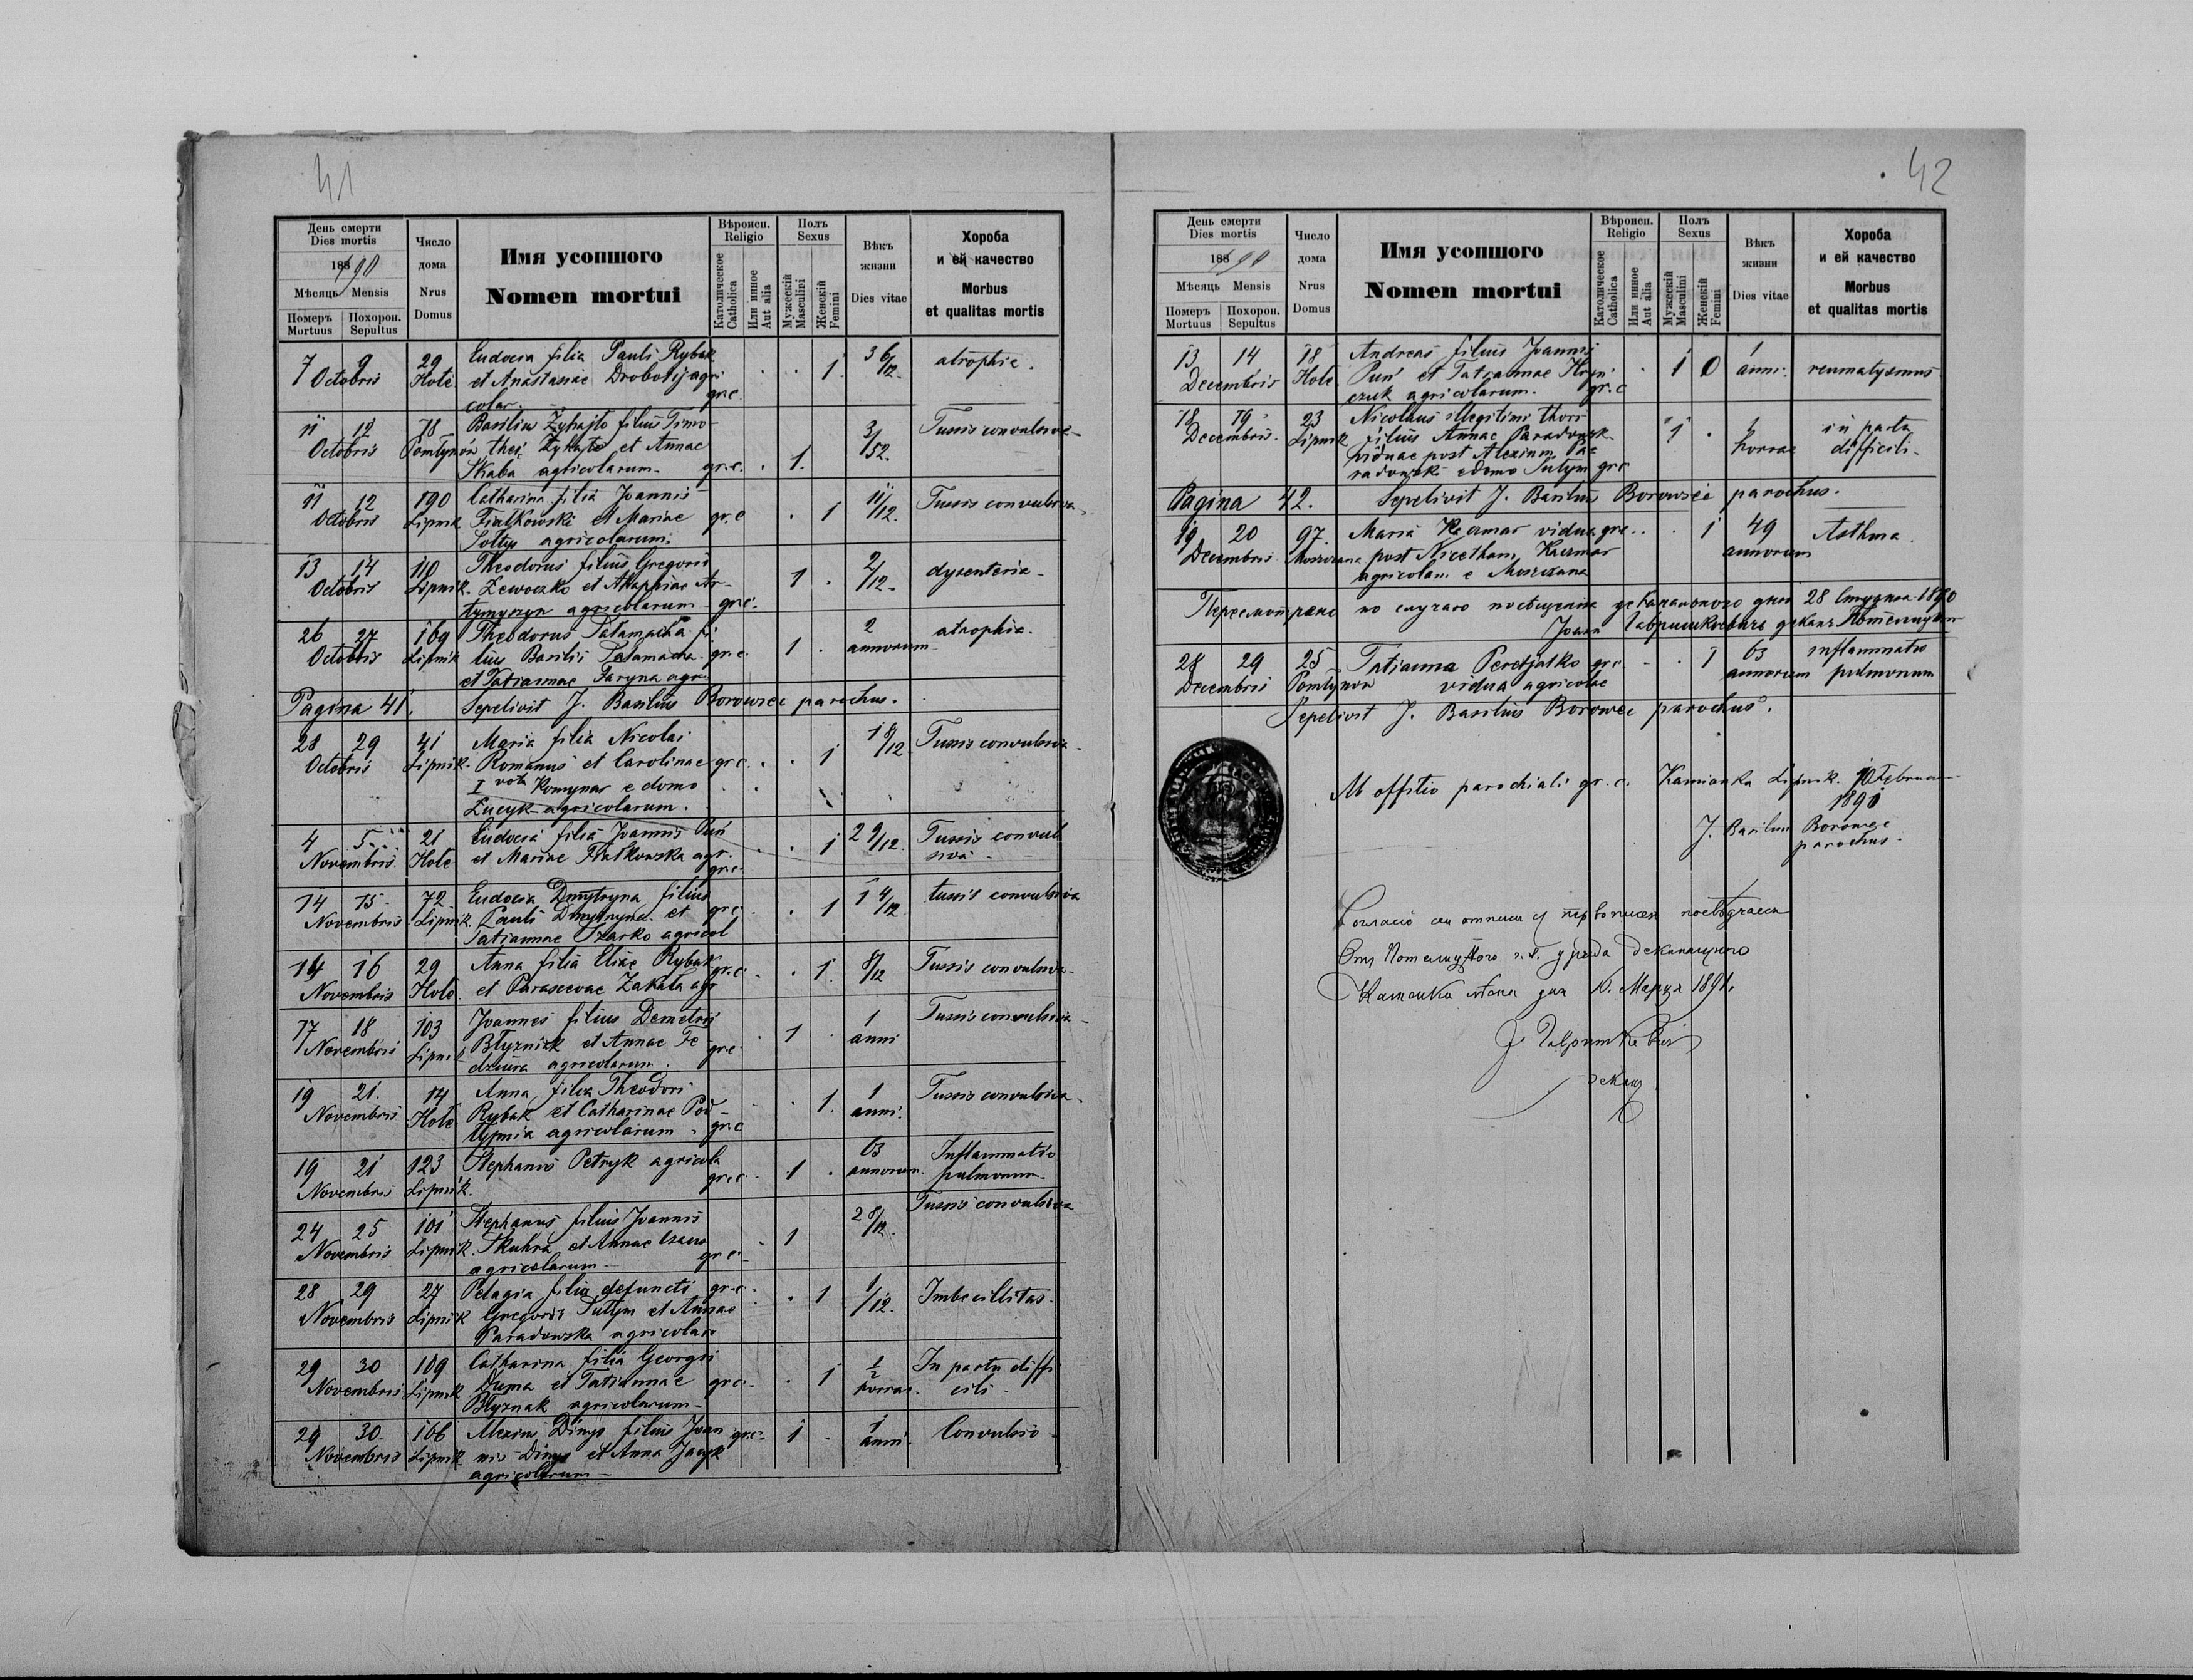 41
День смерти
Dies mortis
1890
Мѣсяць Mensis
Померъ Похорон.
Mortuus Sepultus
Число
дома
Nrus
Domus
Имя усопшого
Nomen mortui
Вѣроисп.
Religio
Католическое
Catholica
Или инное
Aut alia
Полъ
Sexus
Мужескій
Masculini
Женскій
Femini
Вѣкъ
жизни
Dies vitae
Хороба
и ей качество
Morbus
et qualitas mortis
7 9 29 Eudocia filia Pauli Rybak 1 3 6/12 atrophia.
Octobris Hole et Anastasiae Drobotij agri
colar. gr.c.
11 12 78 Basilius Żyhajło filius Timo- 3/52. Tussis convulsiva
Octobris Pomłynów thei Żyhajło et Annae
Skaba agricolarum. gr.c. 1.
11 12 190 Catharina filia Joannis 11/12. Tussis convulsiva
Octobris Lipnik Fiałkowski et Mariae gr.c 1
Sołtys agricolarum.
13 14 110 Theodorus filius Gregorii 1 2/12. dysenteria
Octobris Lipnik. et Agaphiae
agricolarum gr.c.
26 27 169 Theodorus Tatamacha fi- 1 2 atrophia.
Octobris Lipnik lius Basilii Tatamacha gr.c. annorum
et Tatiannae Faryna agri
Pagina 41. Sepelivit J. Basilius Borowiec parochus.
28 29 41 Maria filia Nicolai 1 8/12. Tussis convulsiva
Octobris Lipnik. Romanus et Carolinae gr.c. 1
I vota e domo
agricolarum.
4 5 21 Eudocia filia Joannis Puń 1 2 9/12. Tussis convul
Novembris Hole et Mariae Fiałkowska agr. siva
gr.c.
14 15 72 Eudocia Dmytryna filius 1 1 4/12. tussis convulsiva
Novembris Lipnik. Pauli Dmytryna et gr.c.
Tatiannae agricol
14 16 29 Anna filia Eliae Rybak gr.c. 1 8/12 Tussis convulsiva
Novembris Hole et Parascevae Zakala agr
17 18 103 Joannes filius Demetrii 1 1 Tussis convulsiva
Novembris Lipnik Błyzniak et Annae Fe- gr.c. anni
dziura agricolarum.
19 21. 14 Anna filia Theodori 1 1 Tussis convulsiva
Novembris Hole Rybak et Catharinae Pod- anni.
agricolarum. gr.c
19 21 123 Stephanus Petryk agricola 1 63 Inflammatio
Novembris Lipnik. gr.c. annorum. pulmonum
24 25 101 Stephanus filius Joannis 1 2 8/12. Tussis convulsiva
Novembris Lipnik. Skuhra et Annae
agricolarum gr.c
28 29 27 Pelagia filia defuncti gr.c. 1 1/12. Imbecillitas.
Novembris Lipnik Gregorii Tutym et Annae
Paradowska agricolar
29 30 109 Catharina filia Georgii 1 1/2 In partu diffi
Novembris Lipnik Duma et Tatiannae gr.c. horrae. cili
Błyznak agricolarum
29 30 106 Alexius Dinys filius Joan gr.c. 1 1 Convulsio
Novembris Lipnik nis Dinys et Anna Jacyk anni.
agricolarum
42
День смерти
Dies mortis
1890
Мѣсяць Mensis
Померъ Похорон.
Mortuus Sepultus
Число
дома
Nrus
Domus
Имя усопшого
Nomen mortui
Вѣроисп.
Religio
Католическое
Catholica
Или инное
Aut alia
Полъ
Sexus
Мужескій
Masculini
Женскій
Femini
Вѣкъ
жизни
Dies vitae
Хороба
и ей качество
Morbus
et qualitas mortis
13 14 18 Andreas filius Joannis 1 0 1 reumatysmus
Decembris Hole Puń et Tatiannae Hryń anni.
czuk agricolarum. gr.c
18 19 23 Nicolaus illegitimi thori 1 in partu
Decembris. Lipnik filius Annae Paradowsk horrae difficili
viduae post Alexium Pa-
radowski e domo Tutym gr.c
Pagina 42. Sepelivit J. Basilius Borowiec parochus.
19 20 97. Maria Kaczmar vidua gr.c. 1 49 Asthma.
Decembris Moszczana post Nicetham Kaczmar annorum
agricolam e Moszczana
Пересмотрено по случаю посѣщенія деканального дня 28 1890
Іоанн Гавришкевичъ деканъ
28 29 25 Tatianna Peretjatko gr.c. 1 63 inflammatio
Decembris Pomłynow vidua agricolae annorum pulmonum
Sepelivit J. Basilius Borowiec parochus.
Ab offitio parochiali gr.c. Kamionka Lipnik. 10 Februar
1891
J. Basilius Borowiec
parochus.
деканального
Каменка дня 10. Марця 1891.
Гавришкевич
декан